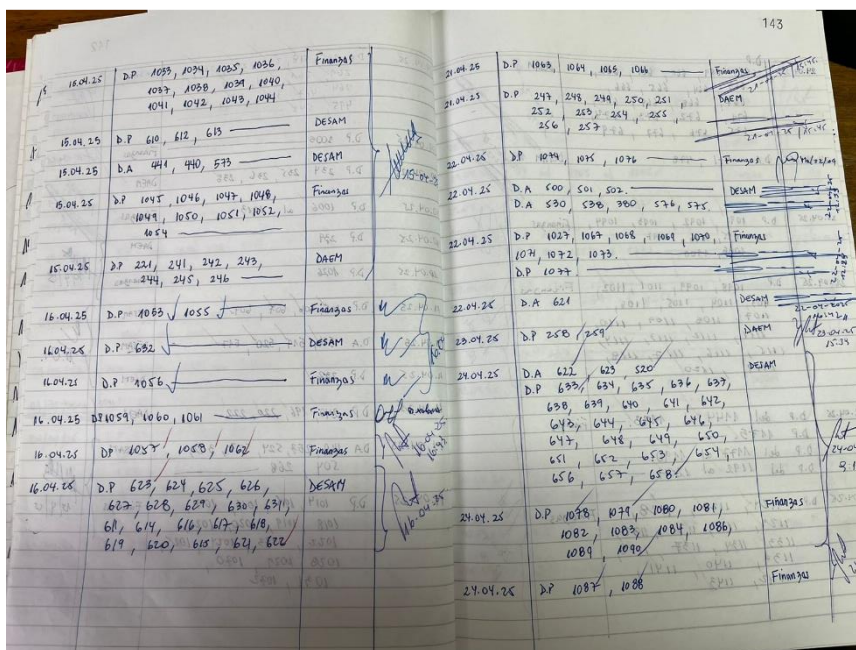 15.04.25 D.P 1033, 1034, 1035, 1036, Finanzas
1037, 1038, 1039, 1040,
1041, 1042, 1043, 1044
15.04.25 D.P 610, 612, 613 DESAM
15.04.25 D.A 441, 440, 573 DESAM
15.04.25 D.P 1045, 1046, 1047, 1048, Finanzas
1049, 1050, 1051, 1052,
1054
15.04.25 D.P 221, 241, 242, 243, DAEM
244, 245, 246
16.04.25 D.P 1053 1055 Finanzas
16.04.25 D.P 632 DESAM
16.04.25 D.P 1056 Finanzas
16.04.25 DP 1059, 1060, 1061 Finanzas
16.04.25 DP 1057, 1058, 1062 Finanzas
16.04.25 D.P 623, 624, 625, 626, DESAM
627, 628, 629, 630, 631,
611, 614, 616, 617, 618,
619, 620, 615, 621, 622
16-04-25
143
21.04.25 D.P 1063, 1064, 1065, 1066 Finanzas
21.04.25 D.P 247, 248, 249, 250, 251, DAEM
252, 253, 254, 255,
256, 257
21-04-25 15:45
22.04.25 DP 1074, 1075, 1076 Finanzas
22.04.25 D.A 500, 501, 502. DESAM
D.A 530, 538, 380, 576, 575.
22.04.25 D.P 1027, 1067, 1068, 1069, 1070, Finanzas
1071, 1072, 1073.
D.P 1077
22.04.25 D.A 621 DESAM
22-04-2025
23.04.25 D.P 258, 259 DAEM
23.04.25
15:34
24.04.25 D.A 622, 623, 520 DESAM
D.P 633, 634, 635, 636, 637,
638, 639, 640, 641, 642,
643, 644, 645, 646,
647, 648, 649, 650,
651, 652, 653, 654,
656, 657, 658
24.04.25 D.P 1078, 1079, 1080, 1081, Finanzas
1082, 1083, 1084, 1086,
1089, 1090
24.04.25 D.P 1087, 1088 Finanzas